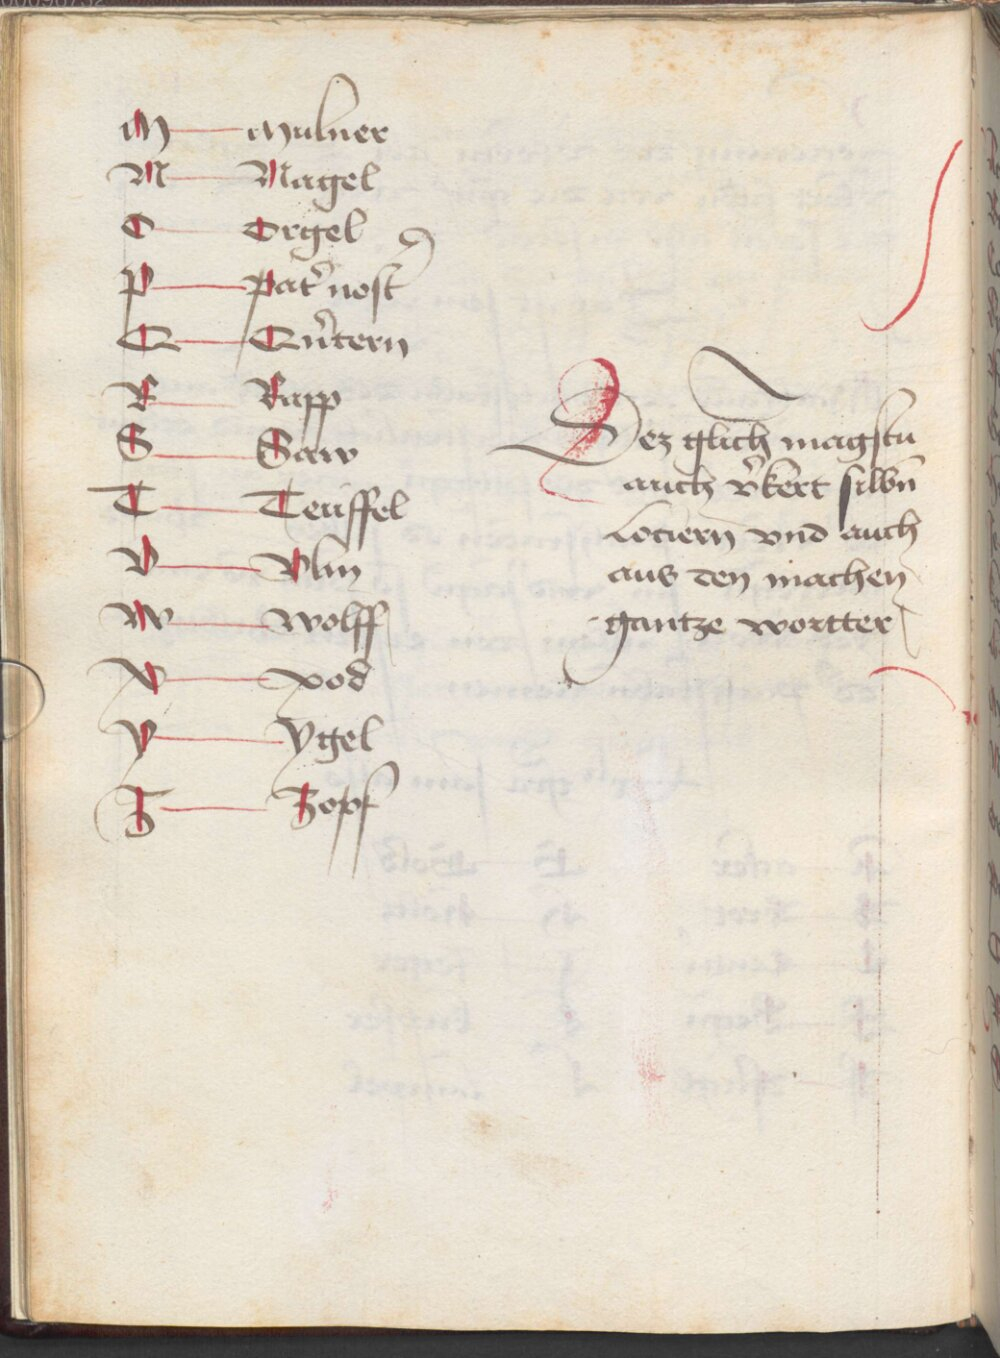 M Mulner
N Nagel
O Orgel
P pat̃ nost̃
Q Qũtern
R Rapp
S Saw
T Teuffel
V Vlin
W wolff
X xod
Y ygel
Z Zopf
Dez glich magstu
auch ṽkert silbñ
Lociern vnd auch
aus den machen
gantze wortter